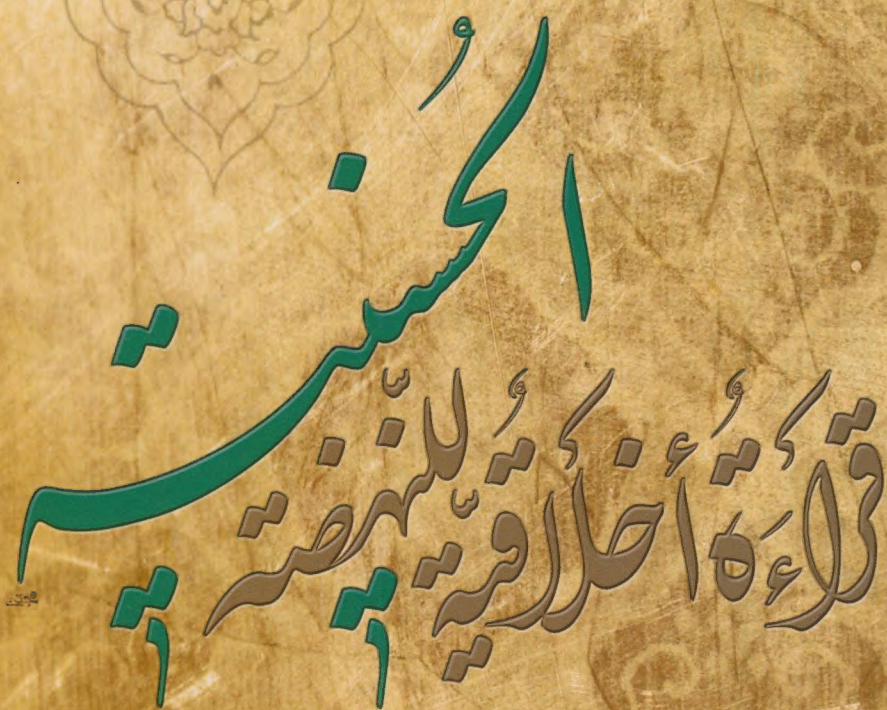 قراءَةُ أخلاقيَّةُ للنَّهضة
الحُسينيةِ